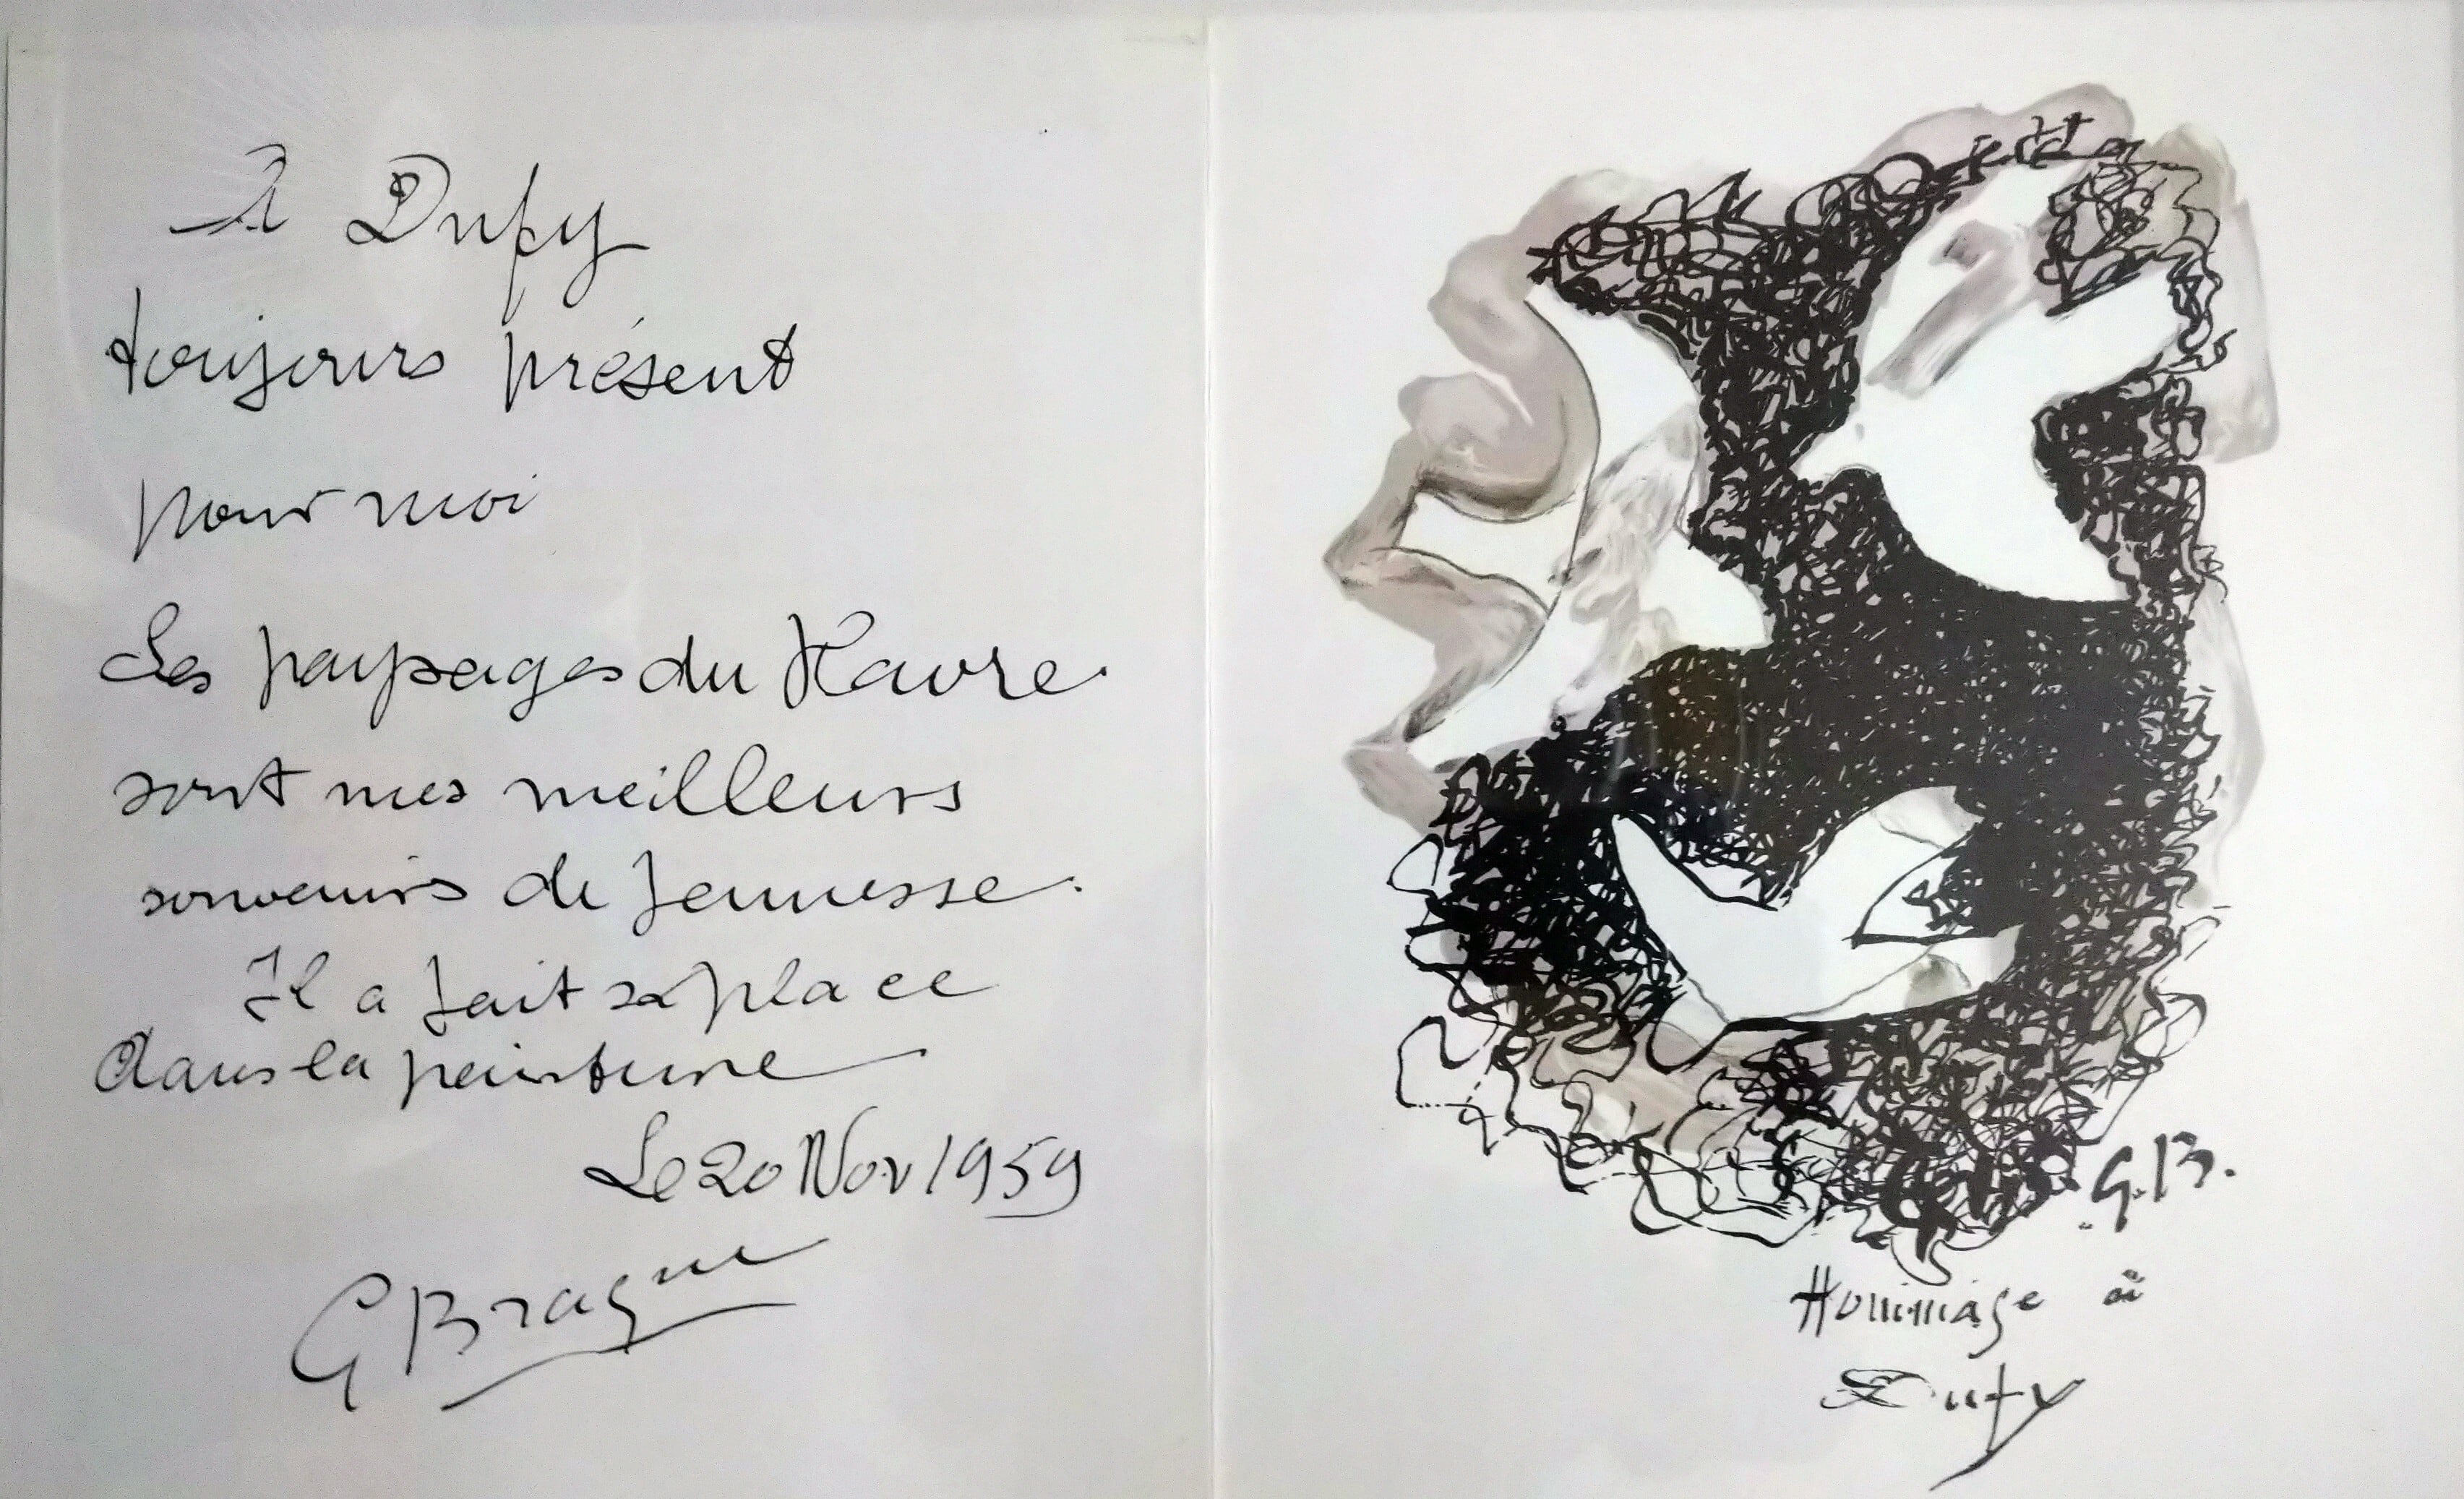 à Dufy
toujours présent
pour moi
Les paysages du Havre.
sont mes meilleurs
souvenirs de jeunesse.
Il a fait sa place
dans la peinture
Le 20 Nov 1959
G Braque
G.B.
Hommage à
Dufy